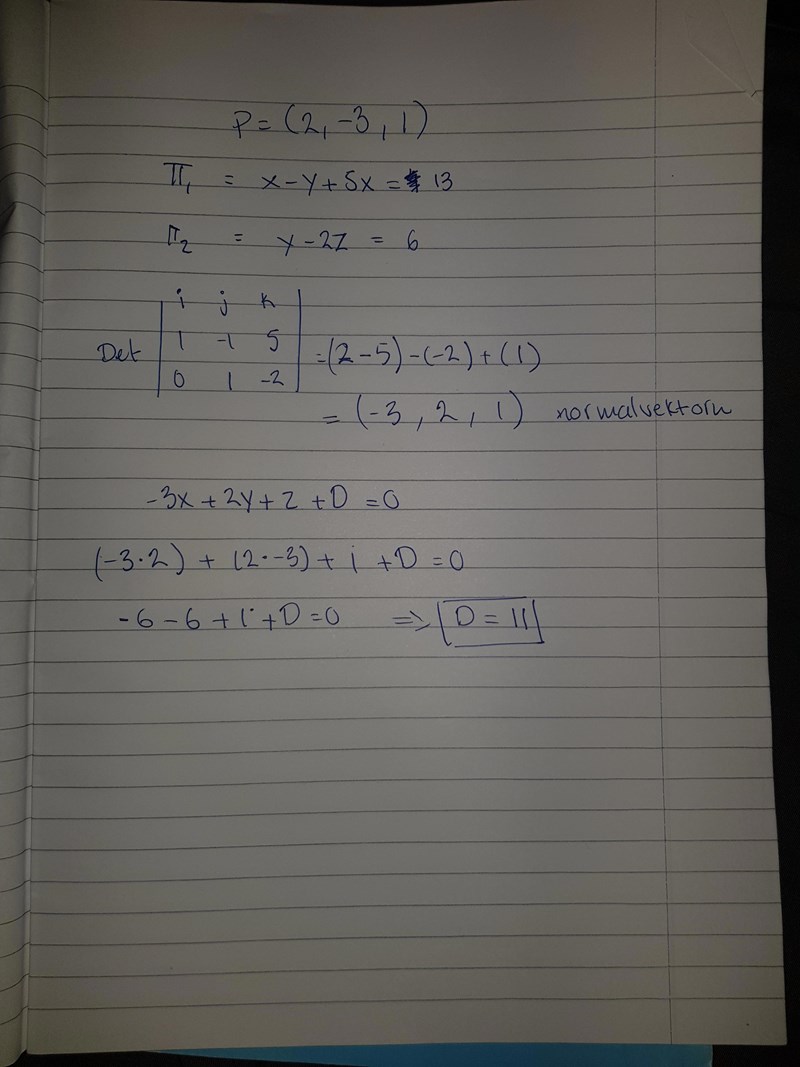 P = (2, -3, 1)
π₁ = x - y + 5x = 13
π₂ = y - 2z = 6
i j k
Det | 1 -1 5 | = (2 - 5) - (-2) + (1)
0 1 -2
= (-3, 2, 1) normalvektorn
-3x + 2y + z + D = 0
(-3·2) + (2·-3) + 1 + D = 0
-6 - 6 + 1 + D = 0 => D = 11